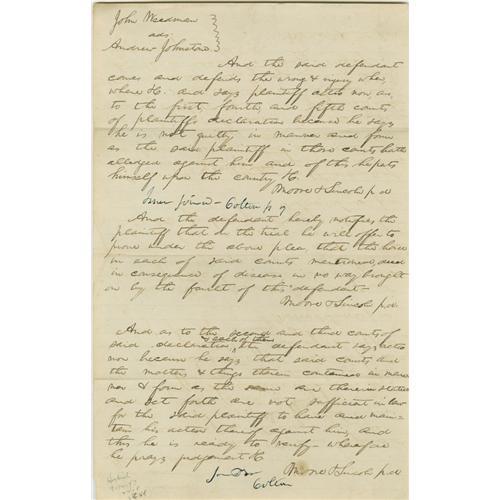 John Weedman
ads
Andrew Johnston
And the said defendant
comes and defends the wrong & injury when
where &c. and says plaintiff actio non as
to the first fourth and fifth counts
of plaintiffs declaration because he says
he is not guilty in manner and form
as the said plaintiff in those counts hath
alledged against him and of this he puts
himself upon the country &c.
Moore & Lincoln p d
Colton p q
And the defendant hereby notifies the
plaintiff that on the trial he will offer to
prove under the above plea, that the horse
in each of said counts mentioned, died
in consequence of disease in no way brought
on by the fault of this defendant—
Moore & Lincoln p.d.
And as to the second and third counts of
& each of them
said declaration, the defendant says actio
non because he says that said counts and
the matters & things therein contained in man
ner & form as the same are therein stated
and set forth are not sufficient in law
for the said plaintiff to have and main-
tain his action thereof against him, and
this he is ready to verify— wherefore
he prays judgement &c
Moore & Lincoln p.d.
Colton